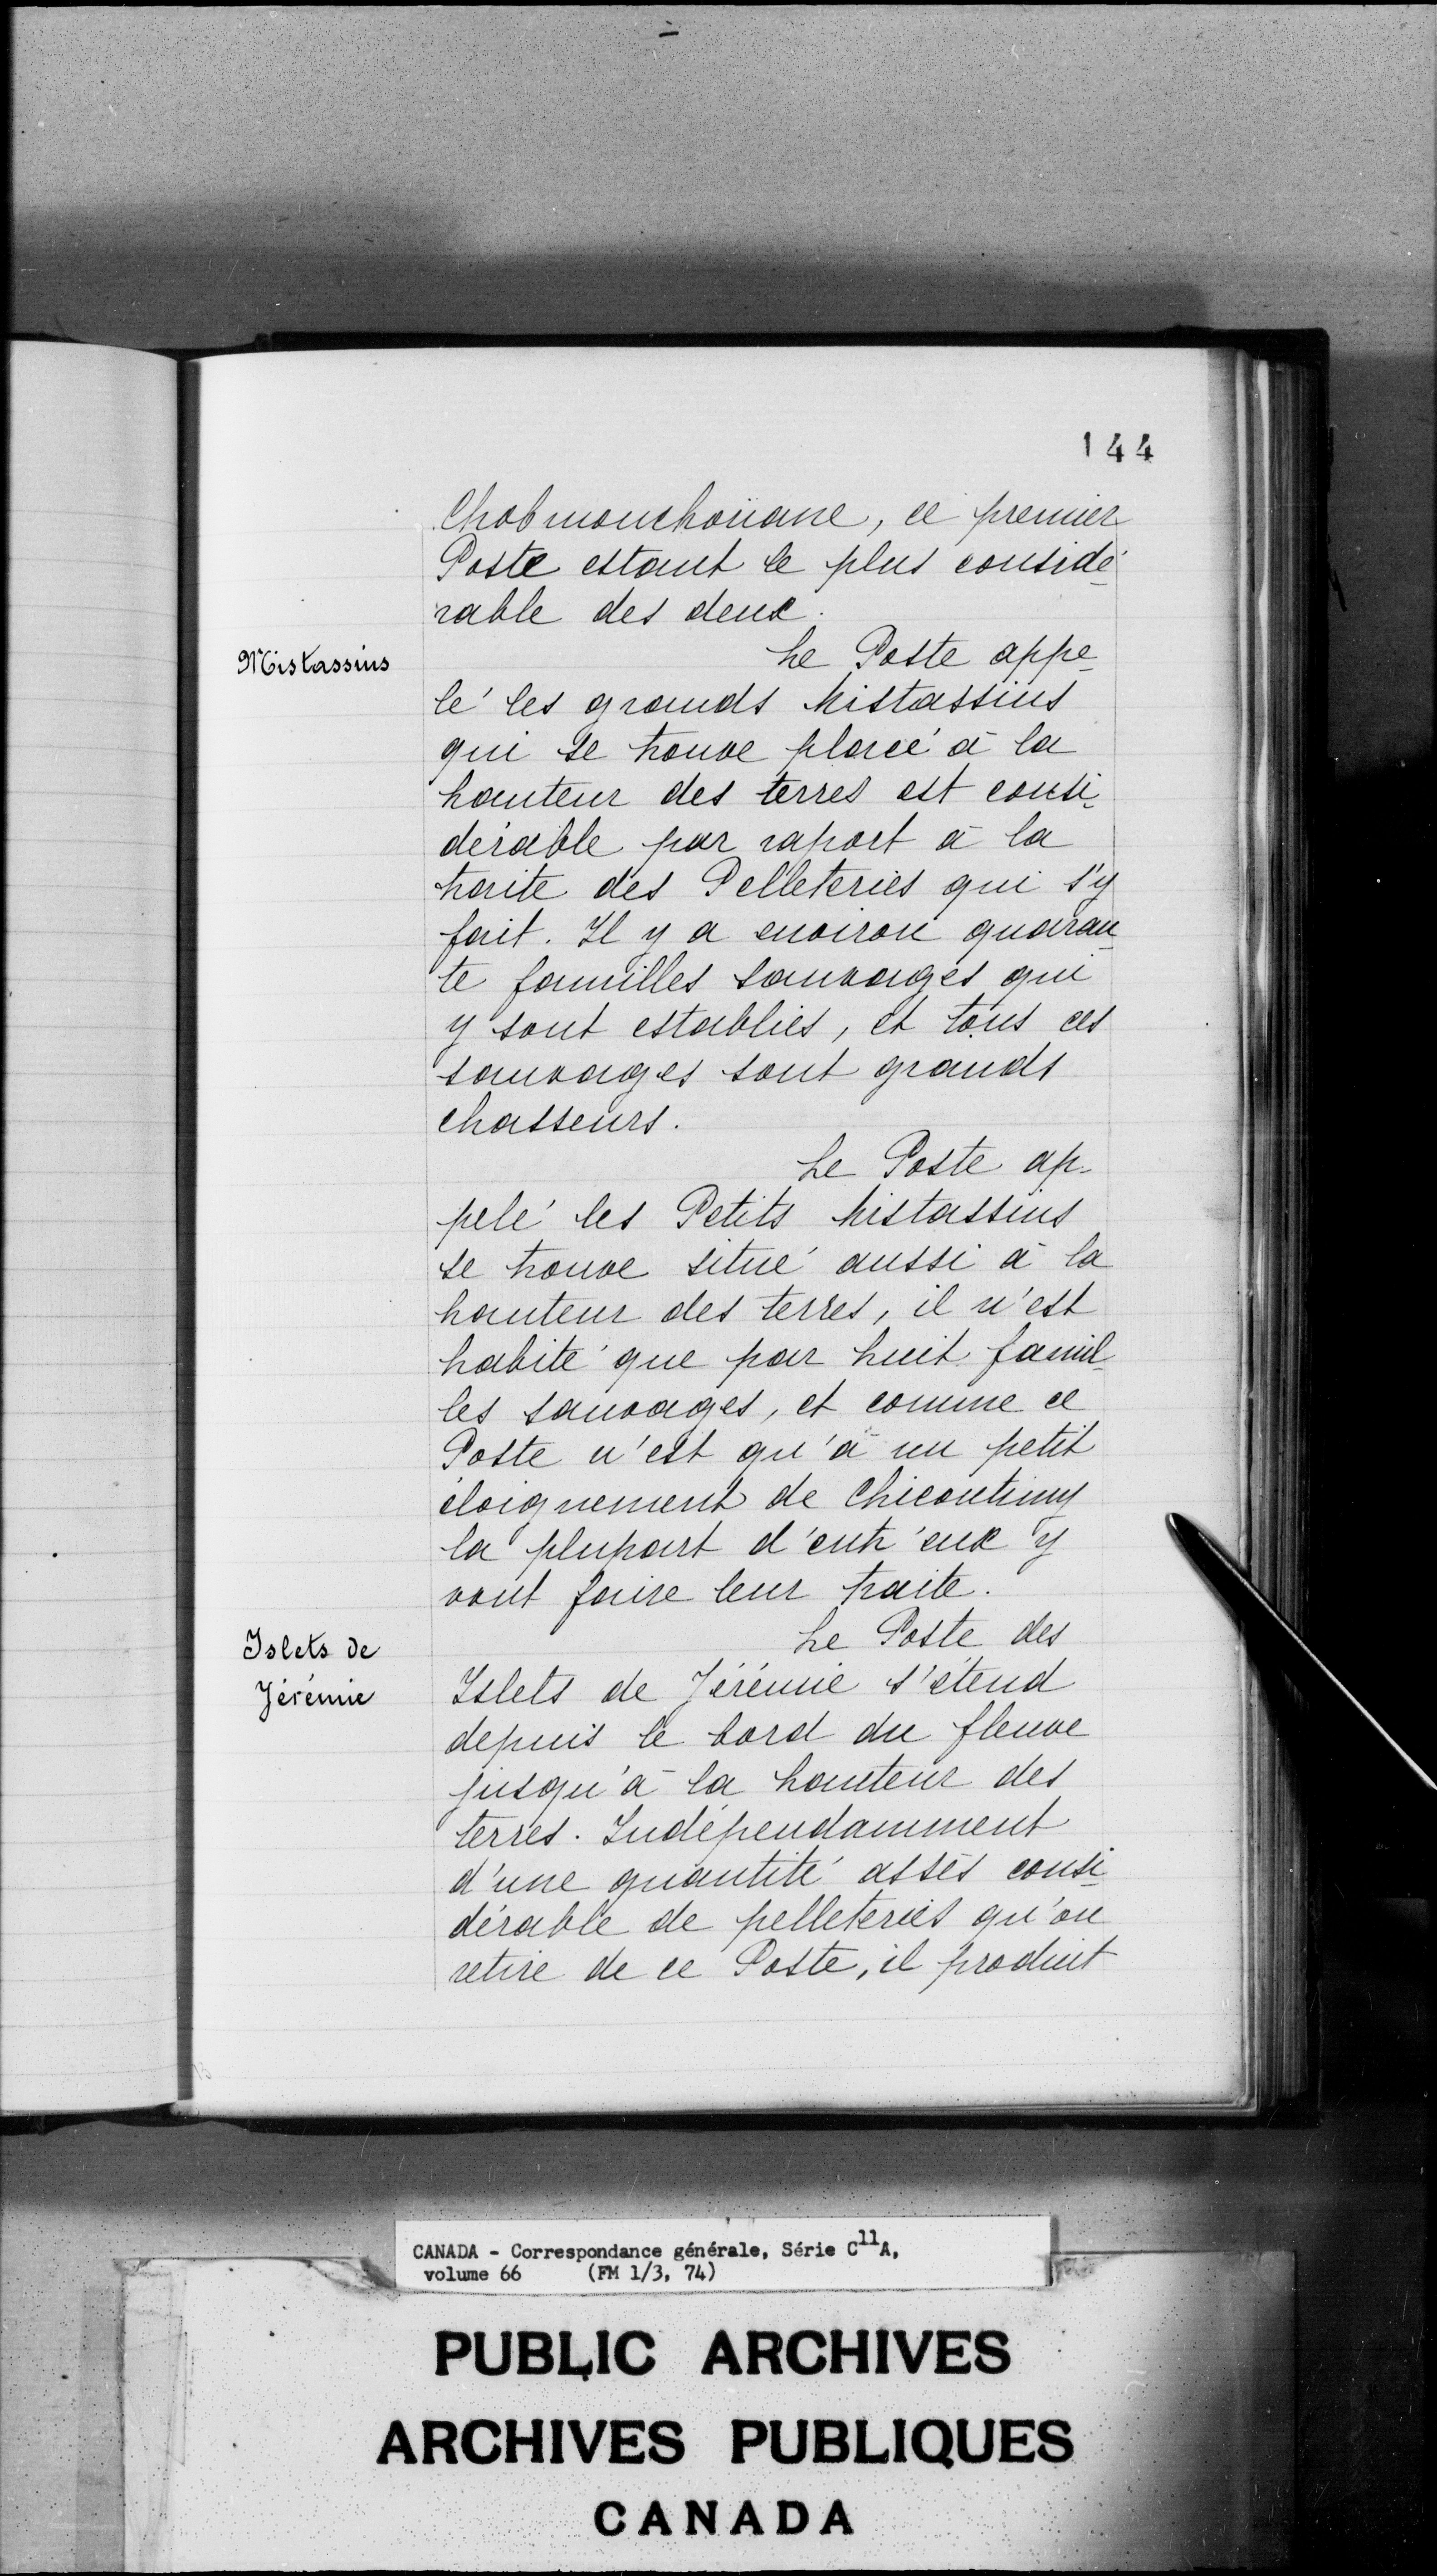 144
Chobmouchoüane, ce premier
Poste estant le plus considé-
rable des deux.
Mistassins
Le Poste appe-
lé les grands Mistassins
qui se trouve placé à la
hauteur des terres est consi-
dérable par raport à la
traite des Pelleteries qui s'y
fait. Il y a environ quaran-
te familles sauvages qui
y sont establies, et tous ces
sauvages sont grands
chasseurs.
Le Poste ap-
pelé les Petits Mistassins
se trouve situé aussi à la
hauteur des terres, il n'est
habité que par huit famil-
les sauvages, et comme ce
Poste n'est qu'à un petit
éloignement de Chicoutimy
la plupart d'entr'eux y
vont faire leur traite.
Islets de
Jérémie
Le Poste des
Islets de Jérémie s'étend
depuis le bord du fleuve
jusqu'à la hauteur des
terres. Indépendamment
d'une quantité assés consi-
dérable de pelleteries qu'on
retire de ce Poste, il produit
CANADA - Correspondance générale, Série C11A,
volume 66 (FM 1/3, 74)
PUBLIC ARCHIVES
ARCHIVES PUBLIQUES
CANADA